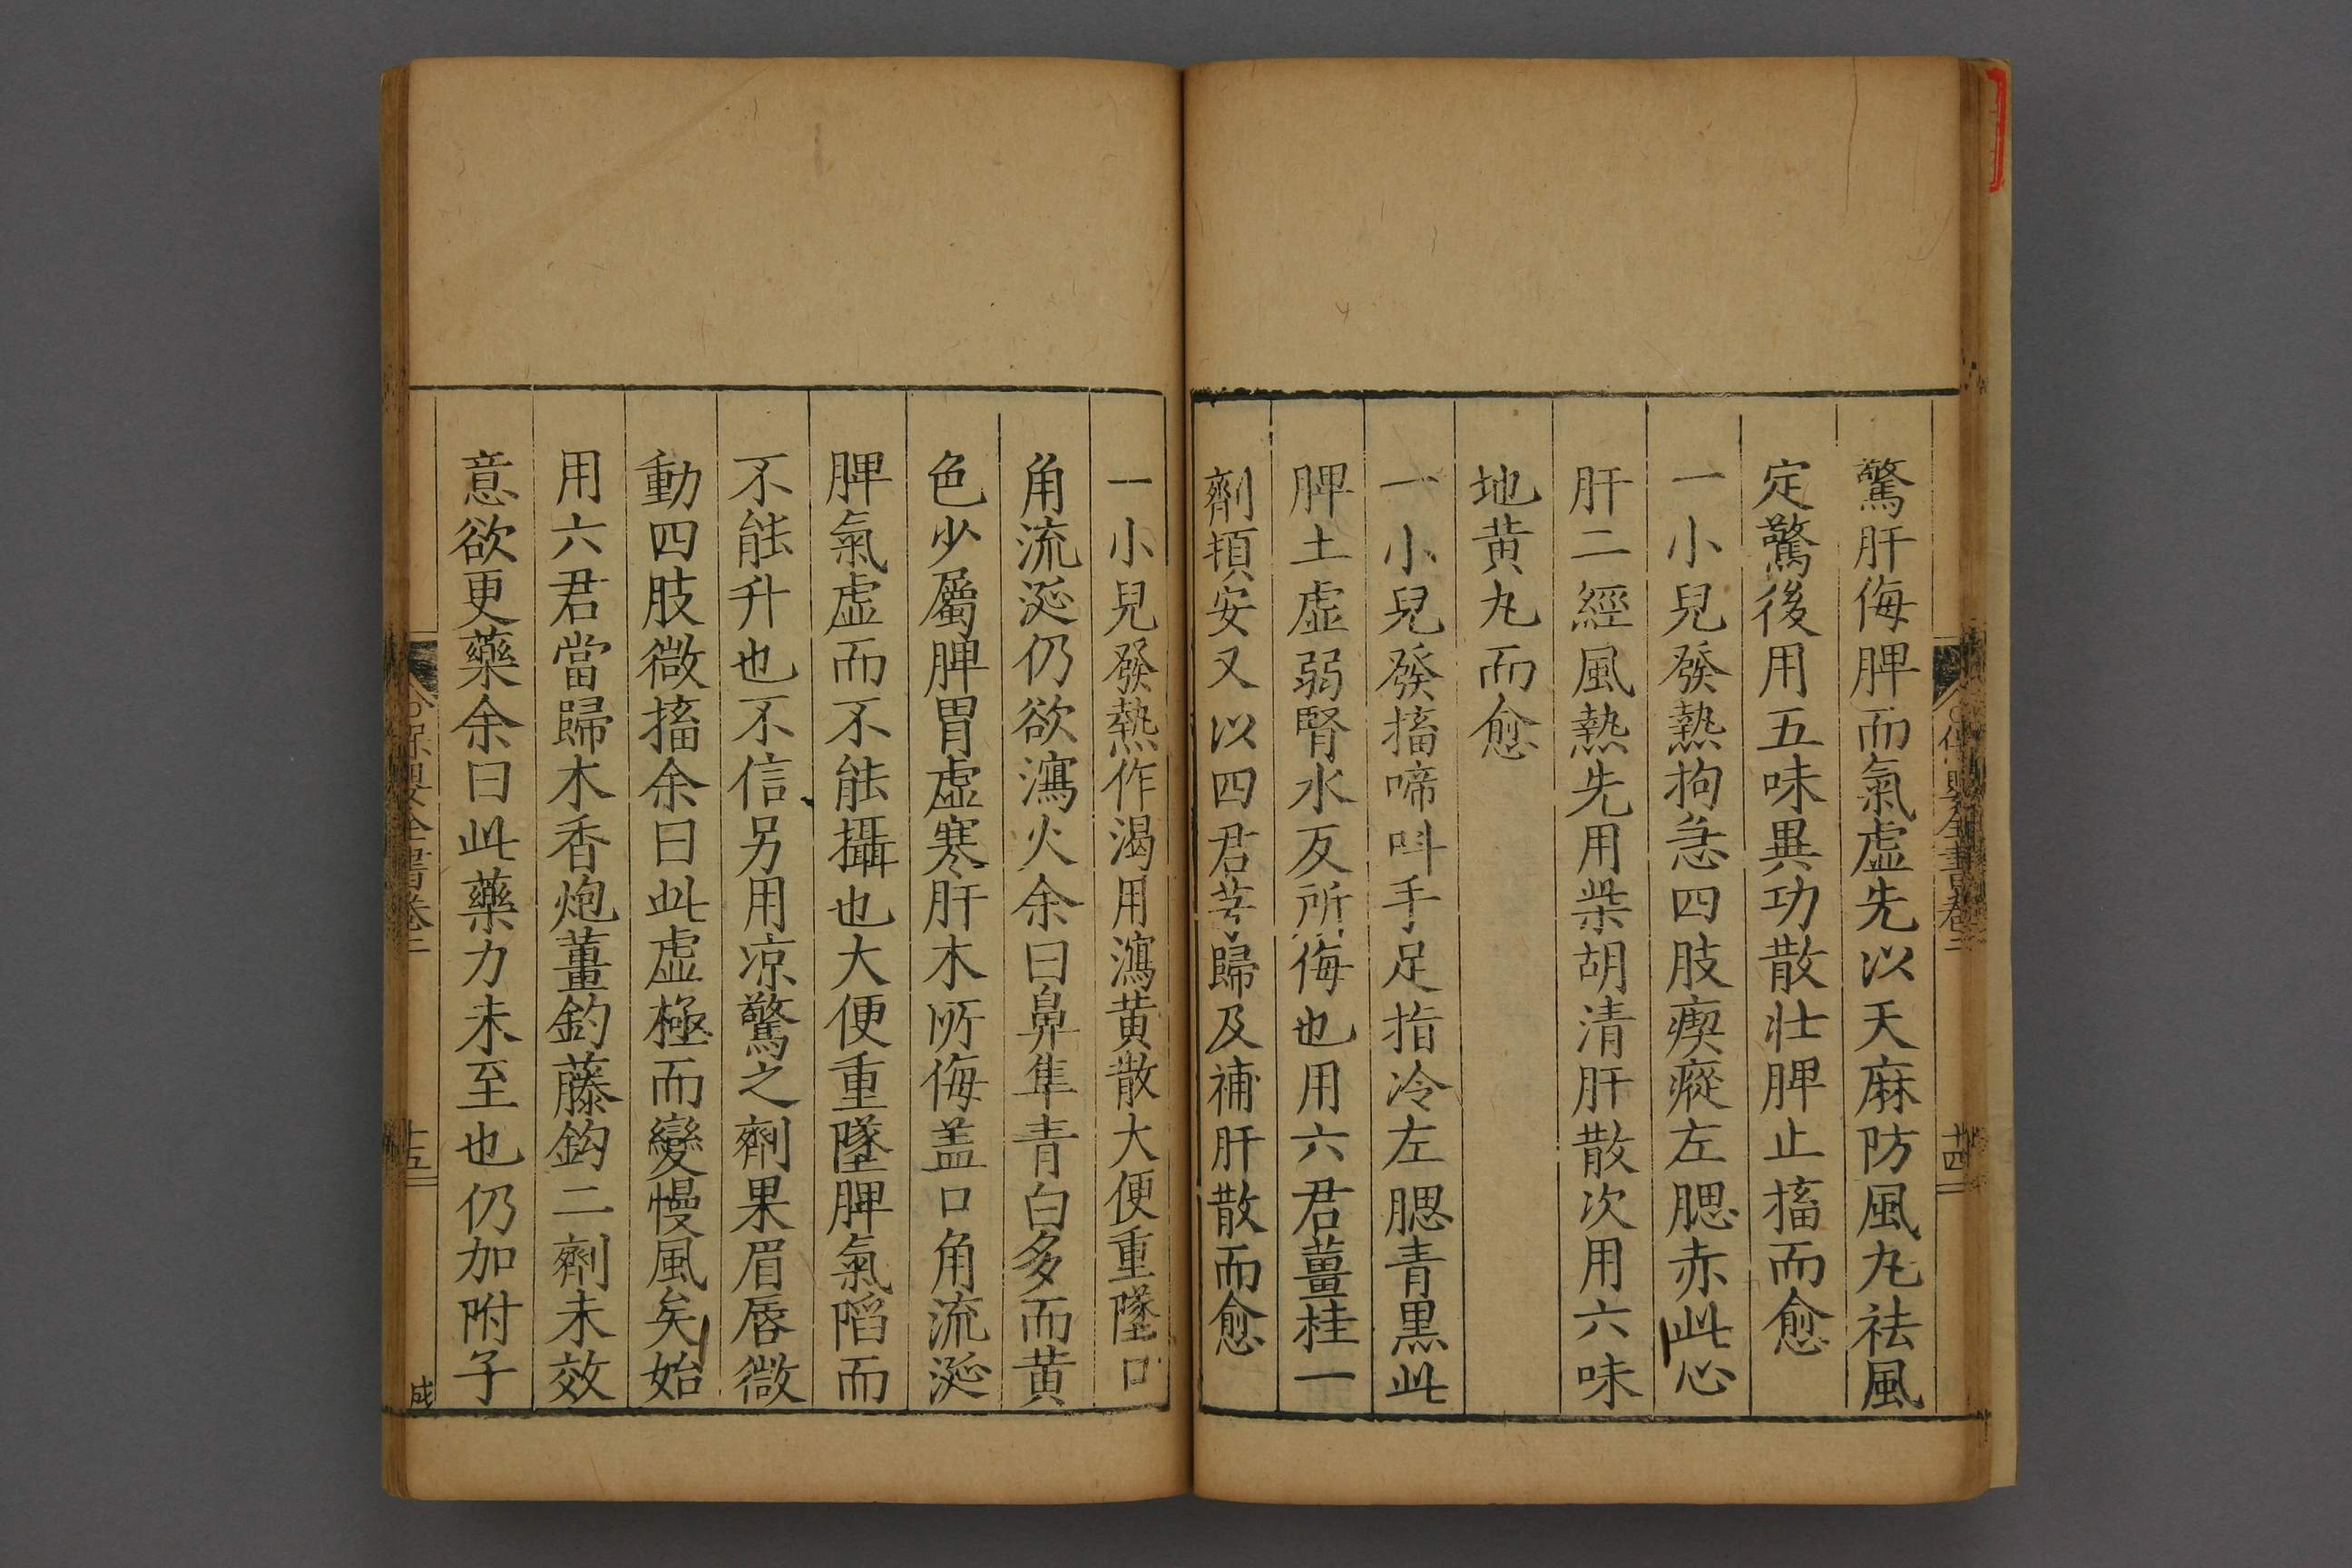 驚肝侮脾而氣虛先以天麻防風丸祛風
定驚後用五味異功散壯脾止搐而愈
一小兒發熱拘急四肢瘈瘲左腮赤此心
肝二經風熱先用柴胡清肝散次用六味
地黃丸而愈
一小兒發搐啼呌手足指冷左腮青黑此
脾土虛弱腎水反所侮也用六君薑桂一
劑頓安又以四君芎歸及補肝散而愈
十四
一小兒發熱作渴用瀉黃散大便重墜口
角流涎仍欲瀉火余曰鼻準青白多而黃
色少屬脾胃虛寒肝木所侮盖口角流涎
脾氣虛而不能攝也大便重墜脾氣陷而
不能升也不信另用凉驚之劑果眉唇微
動四肢微搐余曰此虛極而變慢風矣始
用六君當歸木香炮薑釣藤鈎二劑未效
意欲更藥余曰此藥力未至也仍加附子
保嬰全書卷二
十五
成